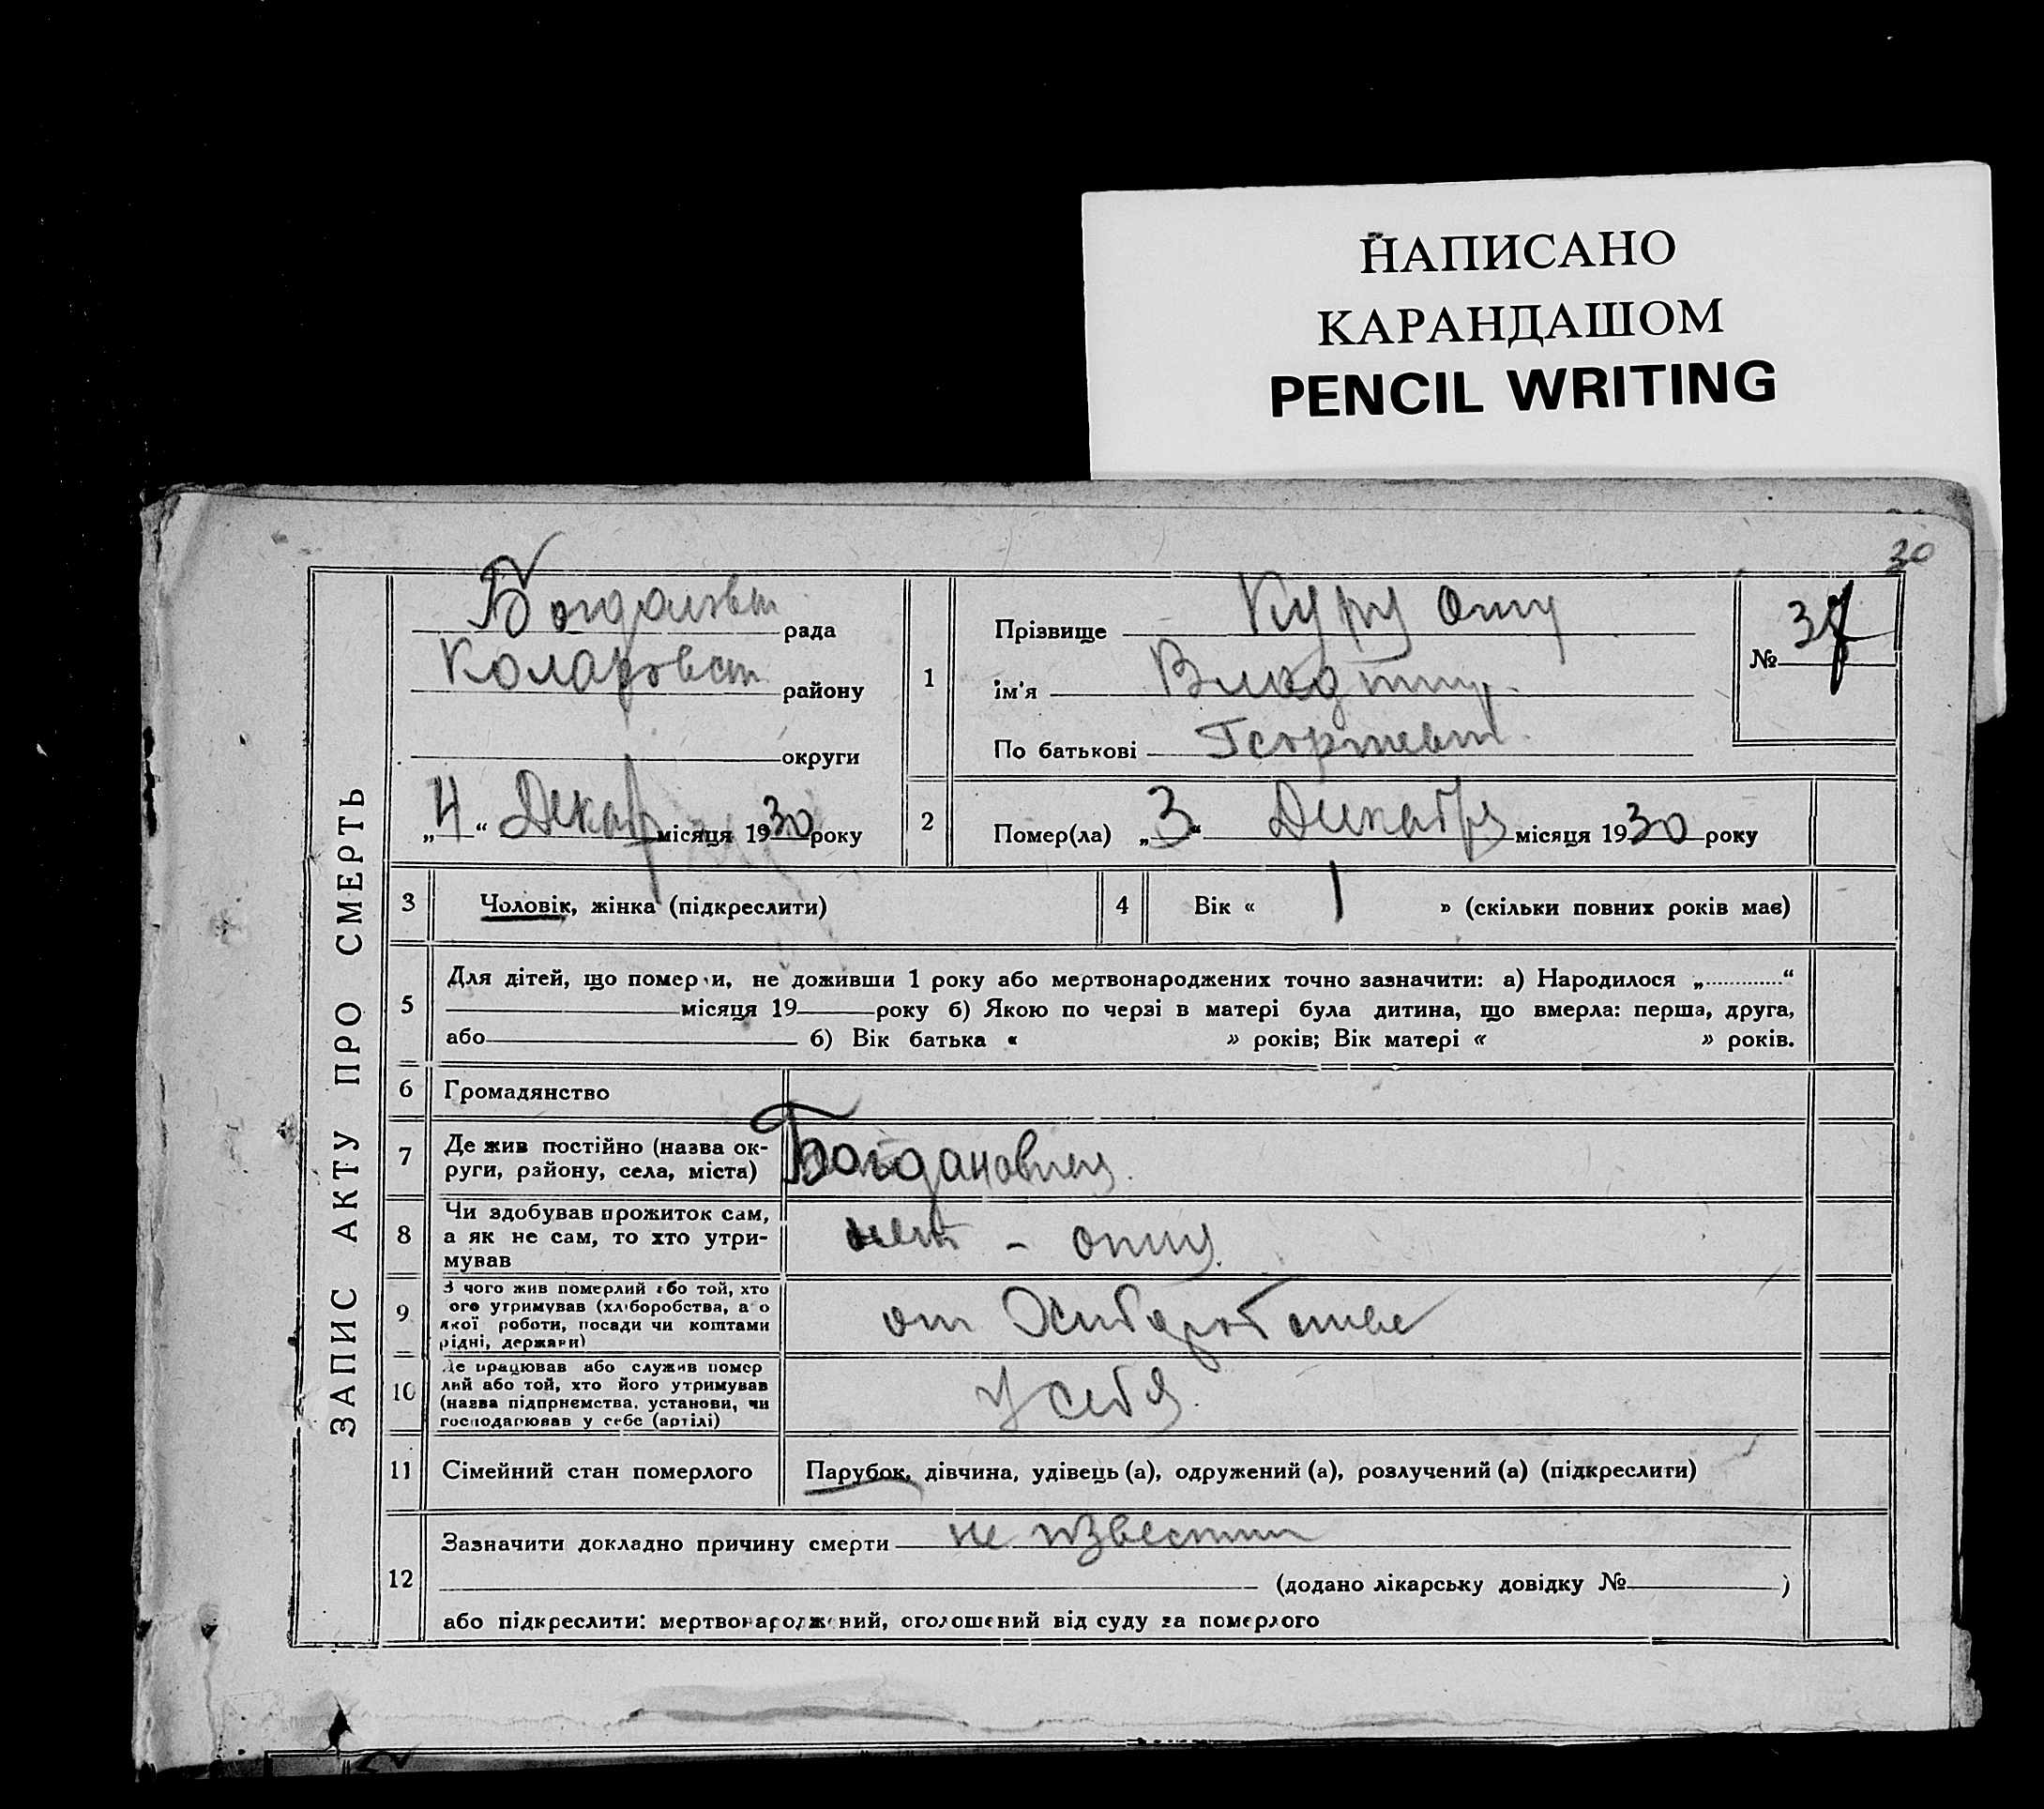 НАПИСАНО
КАРАНДАШОМ
PENCIL WRITING
30
ЗАПИС АКТУ ПРО СМЕРТЬ
рада
Коларовск району
округи
„4“ Декаб місяця 1930 року
1
Прізвище
ім'я
По батькові
№ 37
2
Помер(ла) „3“ Декабря місяця 1930 року
3
Чоловік, жінка (підкреслити)
4
Вік « 1 » (скільки повних років має)
5
Для дітей, що померли, не доживши 1 року або мертвонароджених точно зазначити: а) Народилося „.............“
місяця 19 року б) Якою по черзі в матері була дитина, що вмерла: перша, друга,
або б) Вік батька « » років; Вік матері « » років.
6
Громадянство
7
Де жив постійно (назва ок-
руги, району, села, міста)
8
Чи здобував прожиток сам,
а як не сам, то хто утри-
мував
нет - отец
9
З чого жив померлий або той, хто
ого утримував (хліборобства, а о
якої роботи, посади чи коштами
рідні, держави)
от
10
Де працював або служив помер
лий або той, хто його утримував
(назва підприємства, установи, чи
господарював у себе (артілі)
у себя
11
Сімейний стан померлого
Парубок, дівчина, удівець (а), одружений (а), розлучений (а) (підкреслити)
12
Зазначити докладно причину смерти не известно
(додано лікарську довідку № )
або підкреслити: мертвонароджений, оголошений від суду за померлого